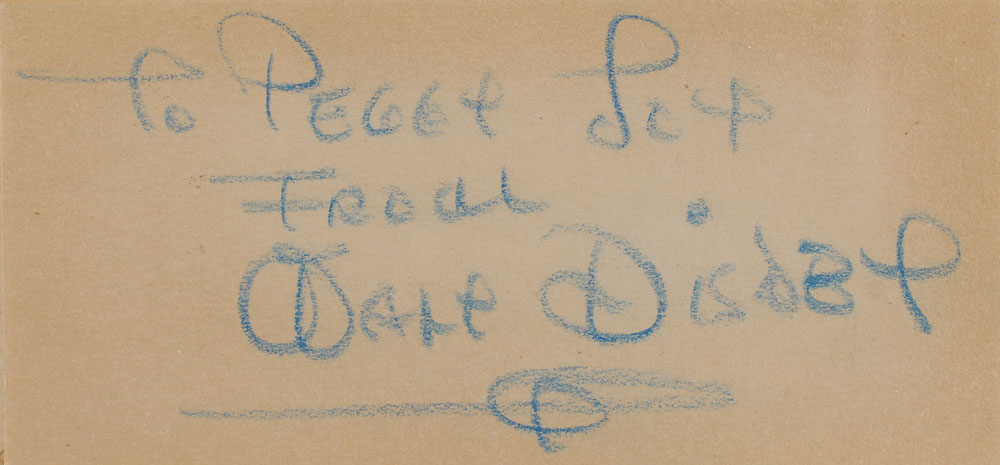 To Peggy Joy
From
Walt Disney